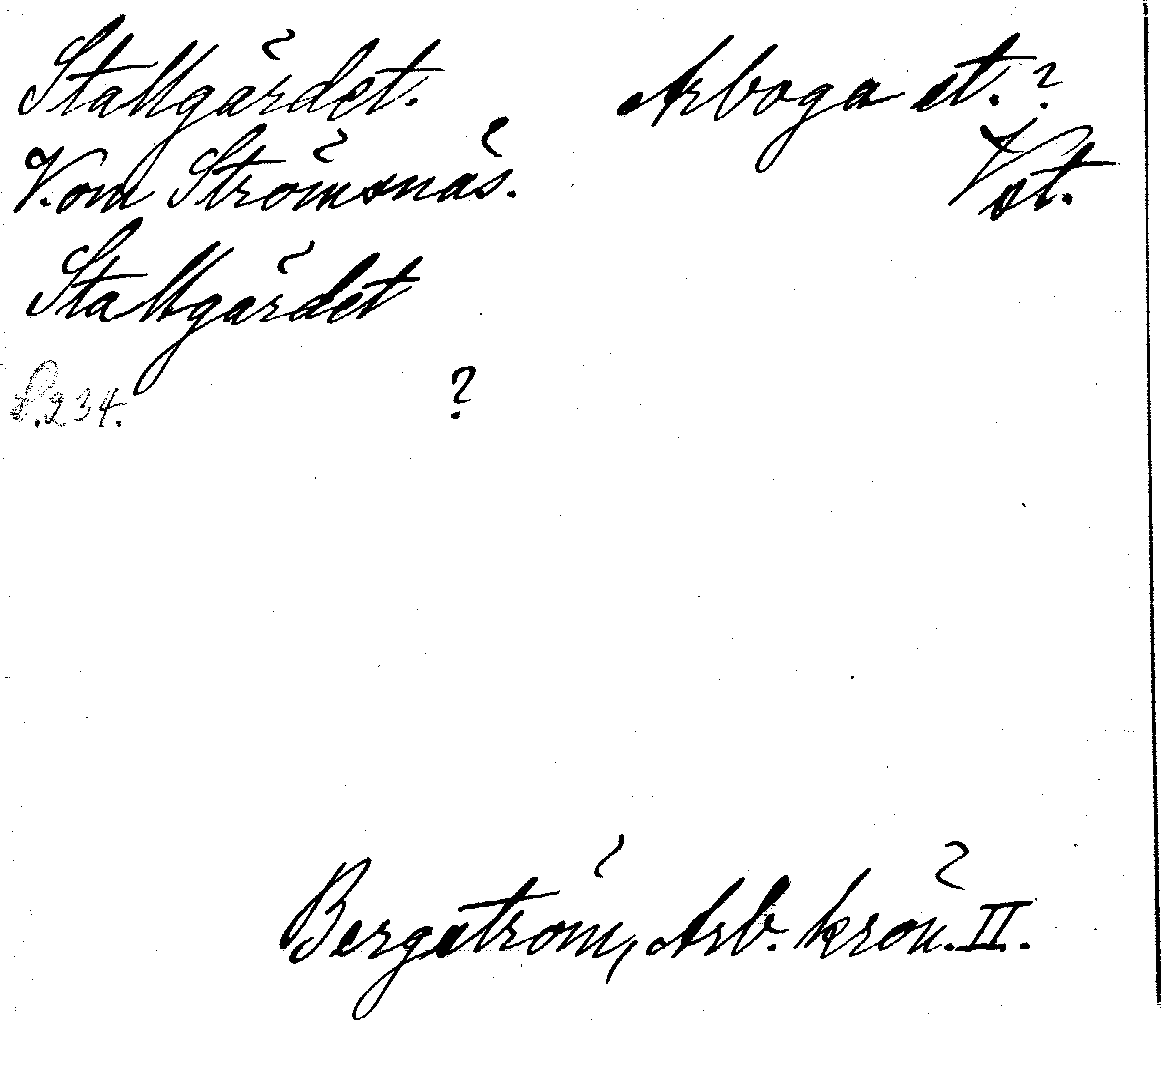 Stallgärdet. Arboga st.?
V. om Strömsnäs. Vst.
Stallgärdet
S. 234. ?
Bergström, Arb. krön. II.